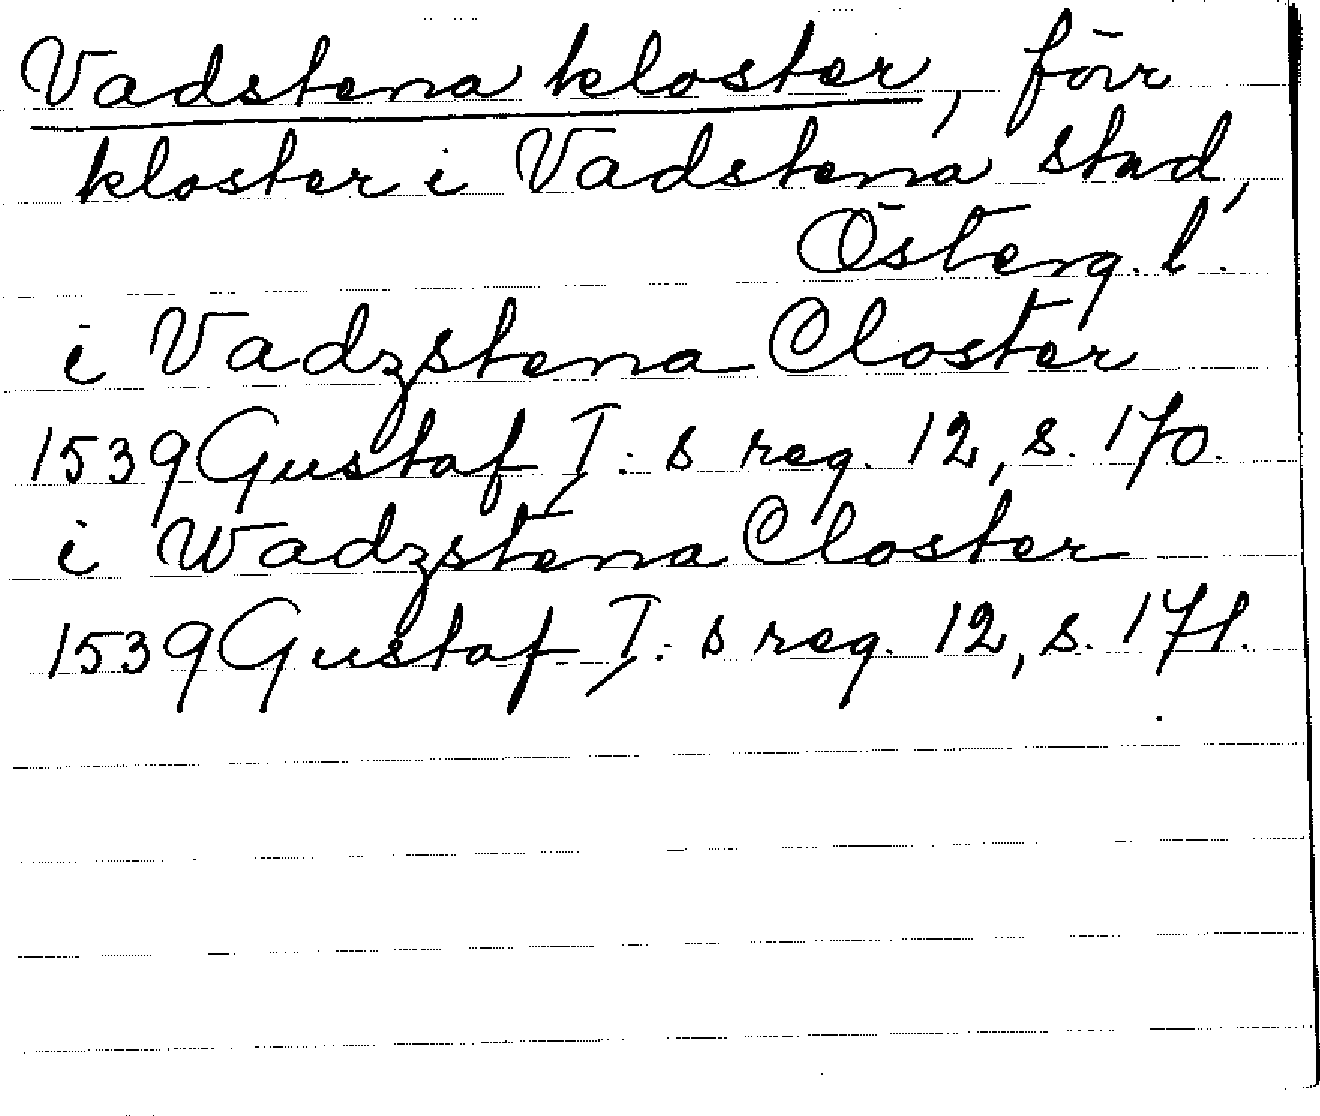 Vadstena kloster, förr
kloster i Vadstena stad,
Österg. l.
i Vadzstena Closter
1539 Gustaf I:s reg. 12, s. 170.
i Wadzstena Closter
1539 Gustaf I:s reg. 12, s. 171.